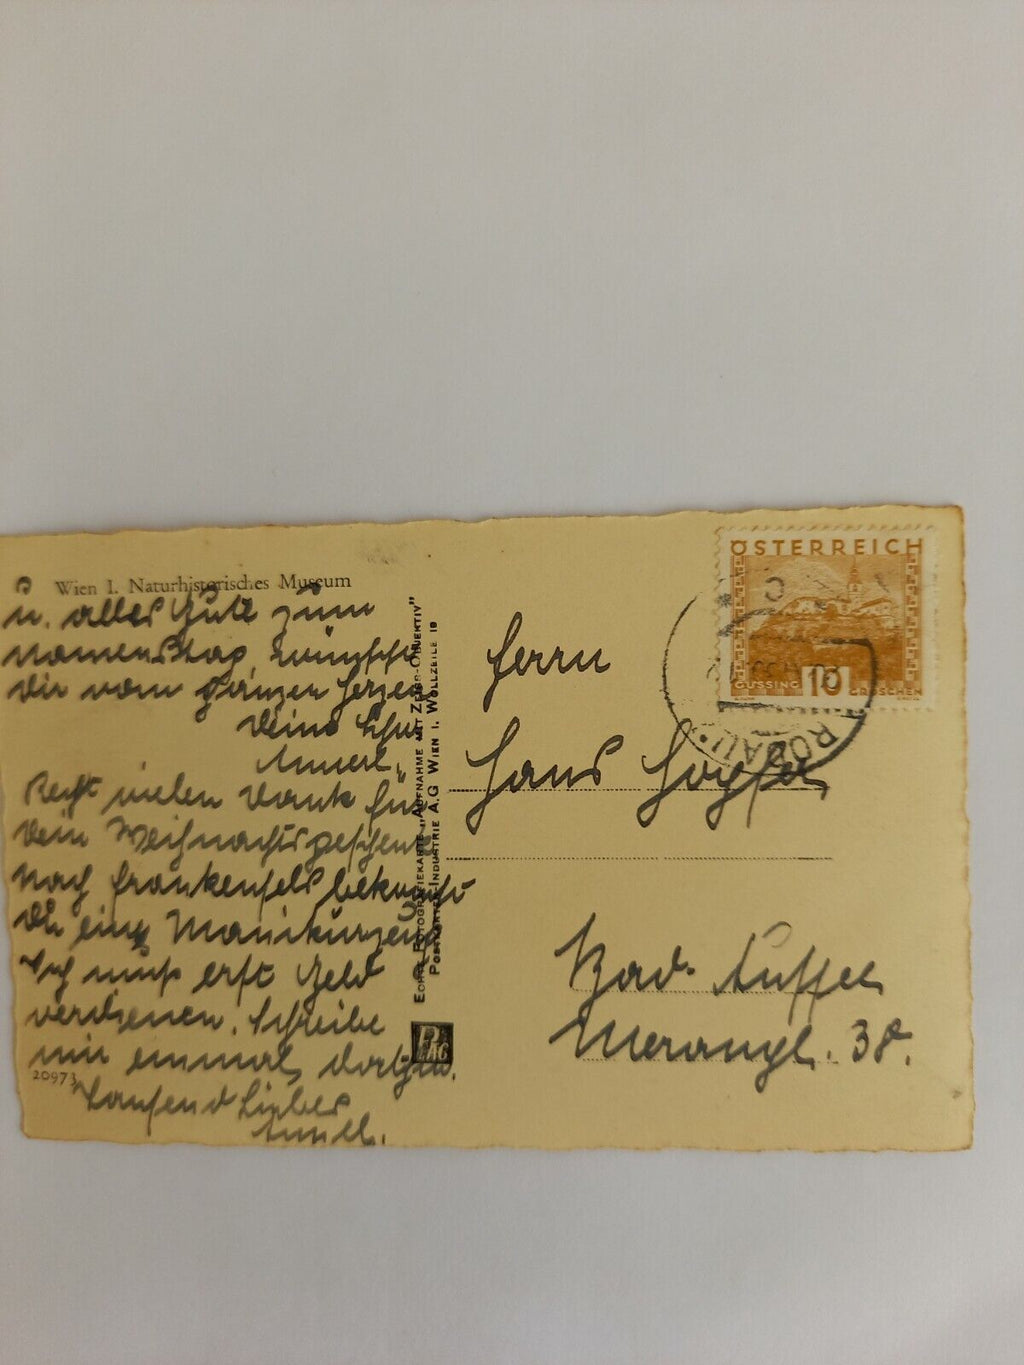 Wien I. Naturhistorisches Museum
u. alles Gute zum
Namenstag, wünscht
Dir vom ganzen Herzen
Deine
Annerl.
Recht vielen Dank für
Dein Weihnachtsgeschenk
nach Frankenfels bekommst
Du eine
Ich muß erst Geld
verdienen. Schreibe
mir einmal, dorthin.
Tausend Liebes
Annerl.
20973
ECHTE FOTOGRAFIEKARTE „AUFNAHME MIT ZEISS-OBJEKTIV"
POSTKARTEN-INDUSTRIE A.G WIEN I. WOLLZEILE 10
PAG
ÖSTERREICH
GÜSSING 10 GROSCHEN
Herrn
Hans
Bad-Aussee
Merangl. 38.